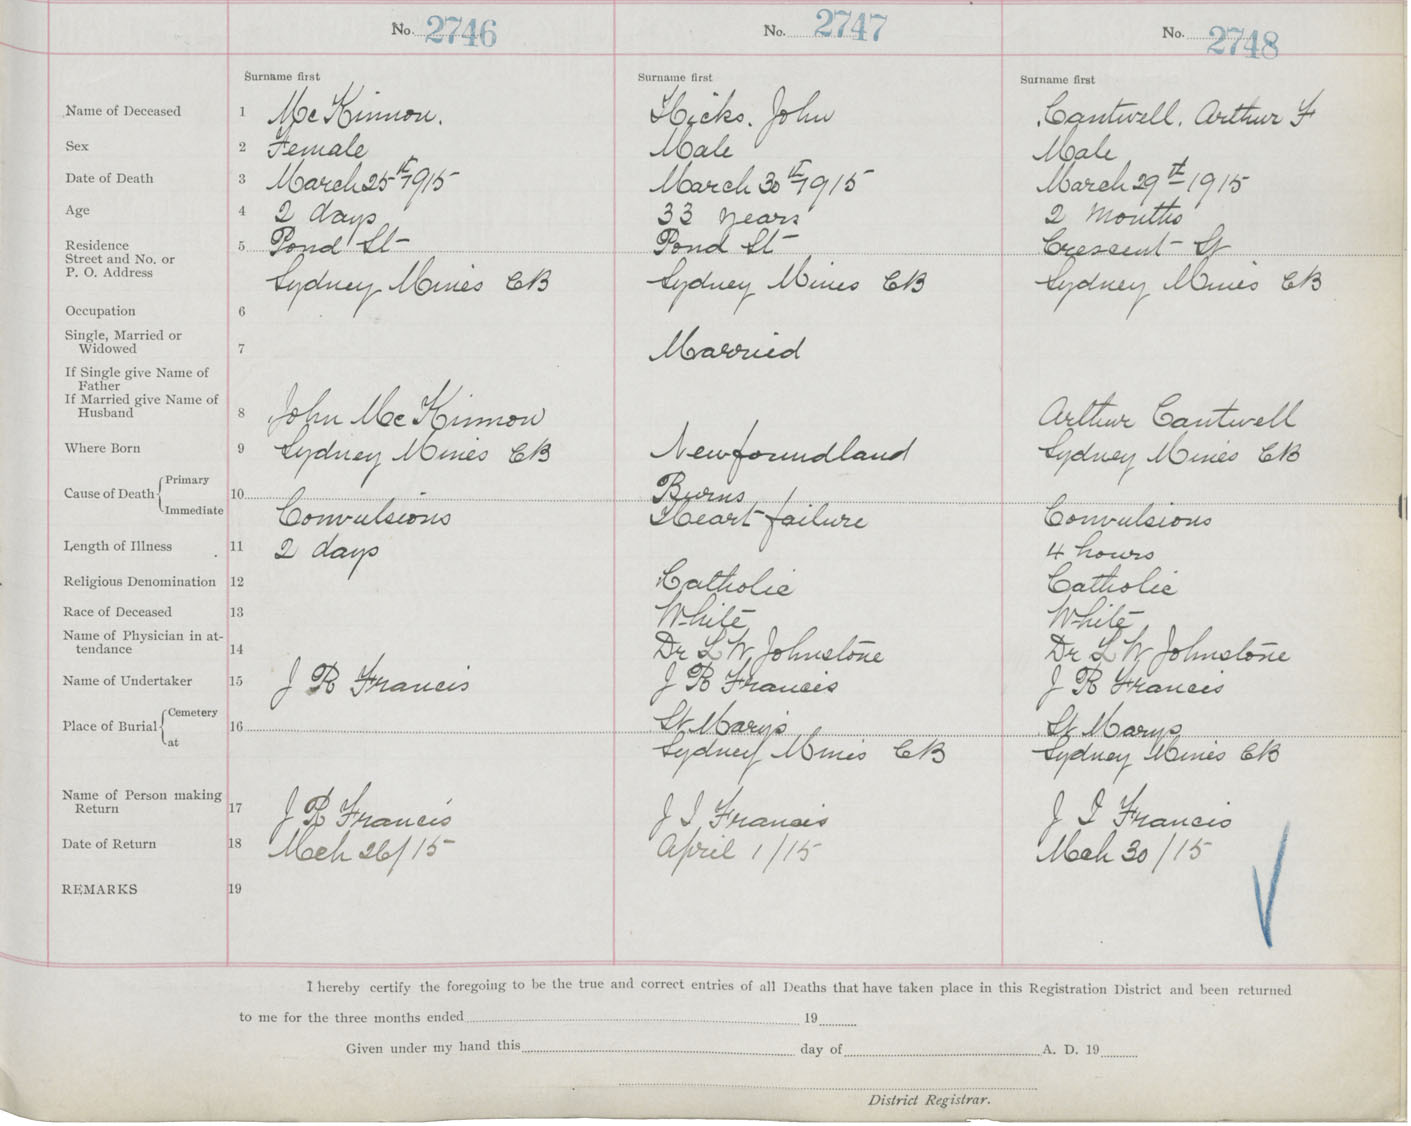 No. 2746 No. 2747 No. 2748
Surname first Surname first Surname first
Name of Deceased 1 McKinnon. Hicks. John Cantwell. Arthur F
Sex 2 Female Male Male
Date of Death 3 March 25th 1915 March 30th 1915 March 29th 1915
Age 4 2 days 33 years 2 Months
Residence 5 Pond St Pond St Crescent St
Street and No. or
P. O. Address Sydney Mines CB Sydney Mines CB Sydney Mines CB
Occupation 6
Single, Married or
Widowed 7 Married
If Single give Name of
Father
If Married give Name of
Husband 8 John McKinnon Arthur Cantwell
Where Born 9 Sydney Mines CB Newfoundland Sydney Mines CB
Cause of Death Primary 10 Burns
Immediate Convulsions Heart failure Convulsions
Length of Illness 11 2 days 4 hours
Religious Denomination 12 Catholic Catholic
Race of Deceased 13 White White
Name of Physician in at-
tendance 14 Dr L W Johnstone Dr L W Johnstone
Name of Undertaker 15 J R Francis J R Francis J R Francis
Place of Burial Cemetery 16 St Mary's St Marys
at Sydney Mines CB Sydney Mines CB
Name of Person making
Return 17 J R Francis J I Francis J I Francis
Date of Return 18 Mch 26/15 April 1/15 Mch 30/15
REMARKS 19
I hereby certify the foregoing to be the true and correct entries of all Deaths that have taken place in this Registration District and been returned
to me for the three months ended 19
Given under my hand this day of A. D. 19
District Registrar.